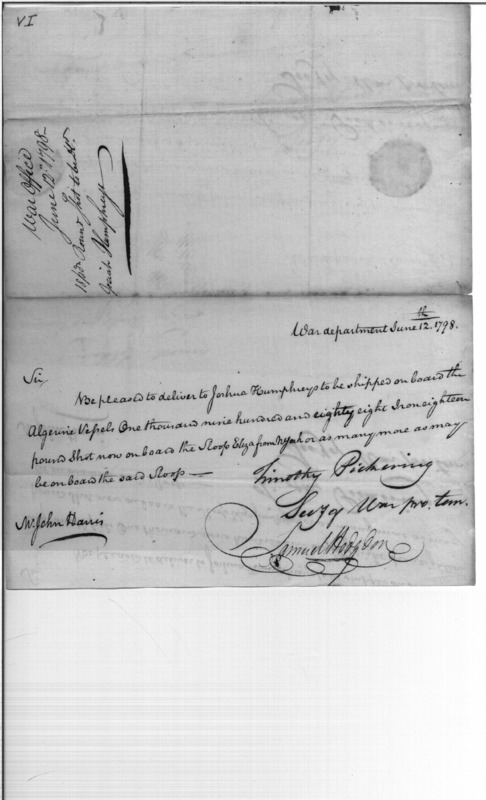 VI
War Office
June 12th 1798
18 pdr Round Shot to be dd.
Joshua Humphreys
War department June 12th 1798.
Sir
Be pleased to deliver to Joshua Humphreys to be shipped on board the
Algerine Vessels One thousand nine hundred and eighty eight Iron eighteen
pound Shot now on board the Sloop Eliza from NYork or as many more as may
be on board the said Sloop —
Timothy Pickering
Secy of War pro. tem.
Mr. John Harris
Samuel Hodgdon